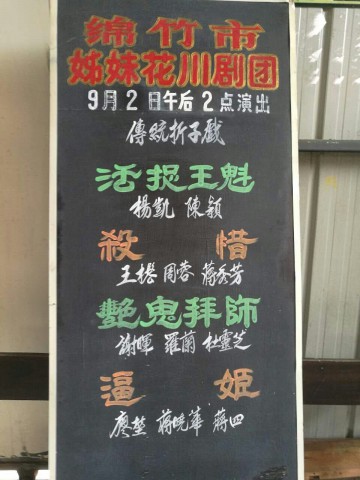 绵竹市
姊妹花川剧团
9月2日午后2点演出
傳統折子戲
活捉王魁
楊凱 陳穎
殺惜
王樁 周蓉 蔣秀芳
艷鬼拜師
謝暉 羅蘭 杜靈芝
逼姬
廖堃 蔣曉華 蔣四